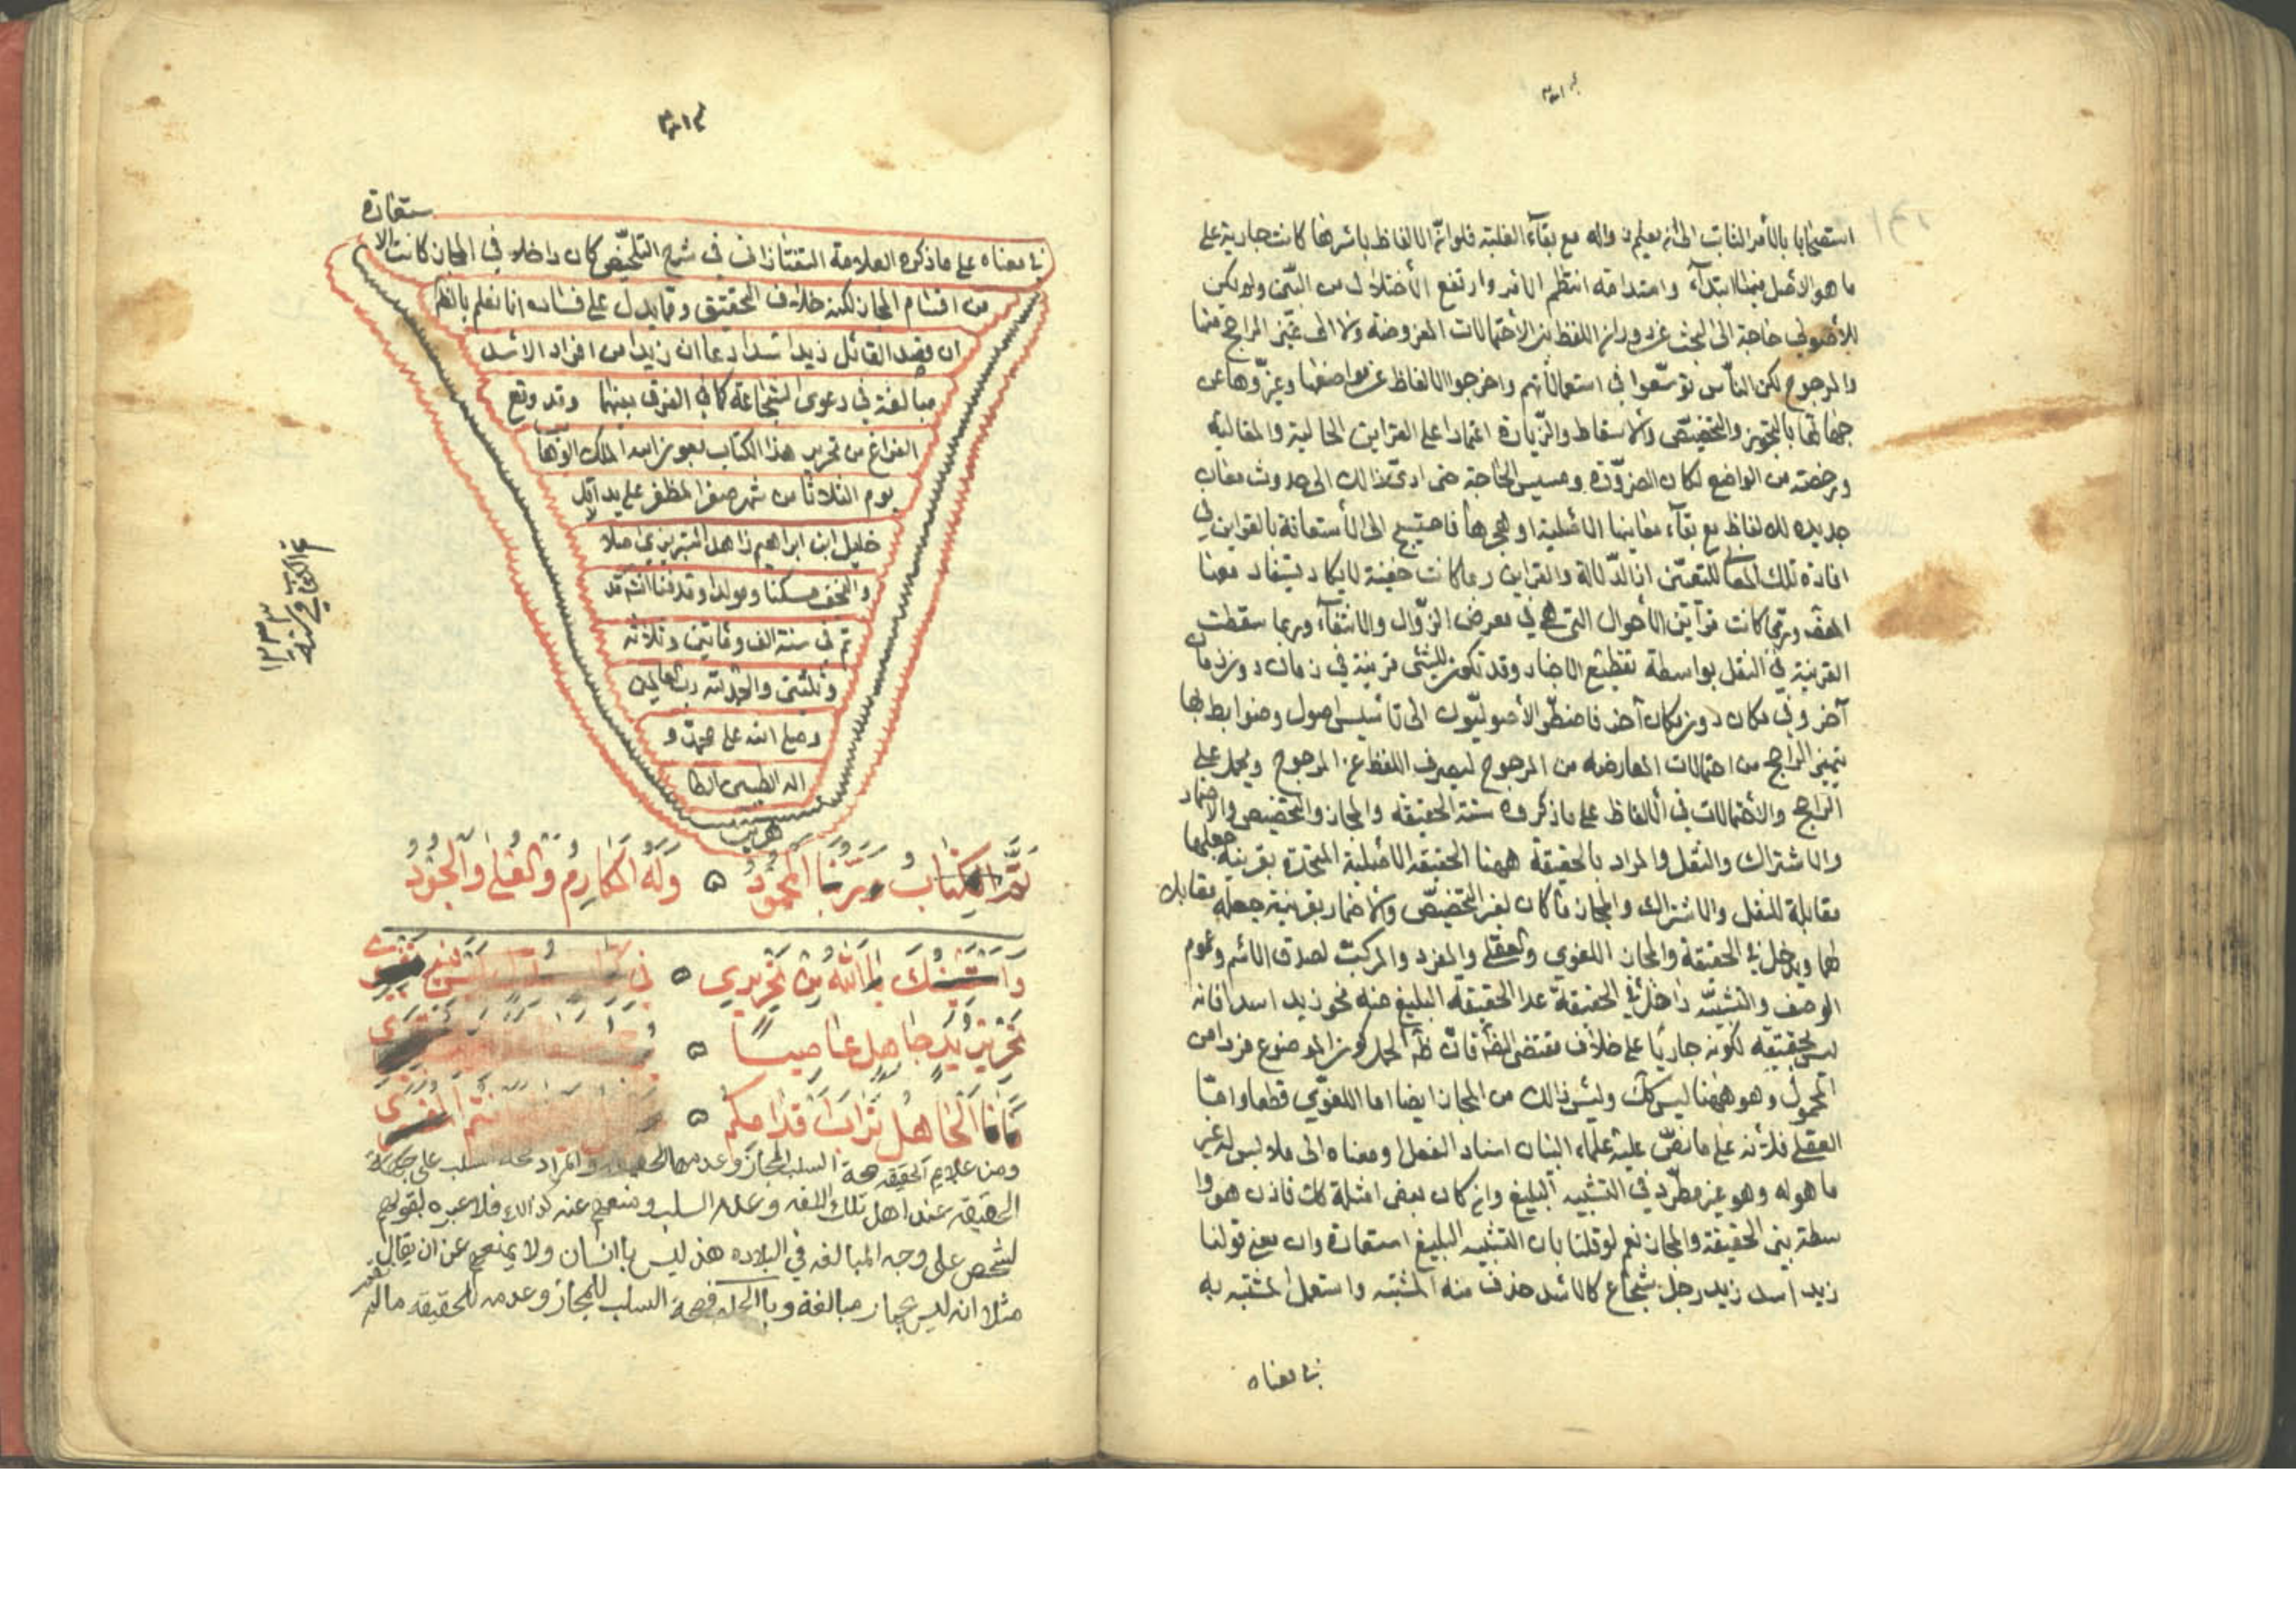 استصحابا بالأمر الثابت الى ان يعلم زواله مع بقاء الغلبة فلو ان الالفاظ باسرها كانت جارية على
ما هو الاصل فيها ابتداء واستدامة انتظم الامر وارتفع الأختلال من البين ولم يكن
للأصولي حاجة الى البحث عن دوران اللفظ بين الأحتمالات المعروضة ولا الى تميز الراجح منها
والمرجوح لكن الناس توسعوا في استعمالاتهم واخرجوا الالفاظ عن مواضعها وغيروها عن
جهاتها بالتجوز والتخصيص والاسقاط والزيادة اعتمادا على القراين الحالية والمقالية
ورخصة من الواضع لمكان الضرورة ومسيس الحاجة حتى ادى ذالك الى حدوث معان
جديده للالفاظ مع بقاء معانيها الاصلية او هجرها فاحتيج الى الأستعانة بالقراين في
افادة تلك المعاني للتعين الدلالة والقراين ربما كانت خفية لا يكاد يستفاد معنا
المقص وربما كانت قرآين الأحوال التي هي في معرض الزوال والانتفاء وربما سقطت
القرينة في النقل بواسطة تقطيع الاخبار وقد تكون للشئ قرينة في زمان دون زمان
آخر وفي مكان دون مكان آخر فاضطر الأصوليون الى تأسيس اصول وضوابط بها
يتميز الراجح من احتمالات المعارضه من المرجوح ليصرف اللفظ عن المرجوح ويحمل على
الراجح والأحتمالات في الالفاظ على ما ذكروه ستة الحقيقة والمجاز والتخصيص والاضمار
والاشتراك والنقل والمراد بالحقيقة ههنا الحقيقة الاصلية المتحدة بقرينة جعلها
مقابلة للنقل والاشتراك والمجاز ما كان لغير التخصيص والاضمار بقرينة جعله مقابل
لهما ويدخل في الحقيقة والمجاز اللغوي والعقلي والمفرد والمركب لصدق الاسم وعموم
الوصف والتشبيه داخل في الحقيقة عدا الحقيقة البليغ منه نحو زيد اسد فانه
ليس بحقيقه لكونه جاريا على خلاف مقتضى الظ فان ظ الحمل كون الموضوع فردا من
المحمول وهو ههنا ليس كك وليس ذالك من المجاز ايضا اما اللغوي قطعا واما
العقلي فلأنه على ما نص عليه علماء البيان اسناد الفعل او معناه الى ملابس له غير
ما هو له وهو غير مطرد في التشبيه البليغ وان كان بعض امثلة كك فاذن هو وا
سطة بين الحقيقة والمجاز نعم لو قلنا بان التشبيه البليغ استعارة وان معنى قولنا
زيد اسد زيد رجل شجاع كالاسد حذف منه المشبه واستعمل المشبه به
في معناه
ستعارة
في معناه على ما ذكره العلامة التفتازاني في شرح التلخيص كان داخلا في المجاز كانت الا
من اقسام المجاز لكنه خلاف التحقيق ومما يدل على فساده انا نعلم بالظم
ان قصد القائل زيد اسد ادعا ان زيدا من افراد الاسد
مبالغة في دعوى الشجاعة كما في الفرق بينهما وقد وقع
الفراغ من تحرير هذا الكتاب بعون الله الملك الوهاب
يوم الثلاثا من شهر صفر المظفر على يد اقل
خليل ابن ابراهيم زاهد التبريزي اصلا
والنجف مسكنا ومولدا ومدفنا انش قد
تم في سنة الف ومأتين وثلاثه
وثلثين والحمد لله رب العالمين
وصلى الله على محمد و
اله الطيبين الطا
هرين
تم الكتاب وربنا المحمود ۵ وله المكارم والعلى والجود
واستغفرك بالله من تحريري ۵ في
تحرير يد جاهل عاصيا ۵
فانا الجاهل تراب اقدامكم ۵
ومن علايم الحقيقه صحة السلب للمجاز وعدمها للحقيقه والمراد صحة سلب على جهة
الحقيقه عند اهل تلك اللغه وعدم السلب ومنعهم عنه كذالك فلا عبره بقولهم
لشخص على وجه المبالغه في البلاده هذ ليس باانسان ولا يمنعهم عن ان يقال
مثلا انه ليس بحمار مبالغة وباالجملة فصحة السلب للمجاز وعدمه للحقيقه مالم
تم الكتاب في سنة
١٢٣٣